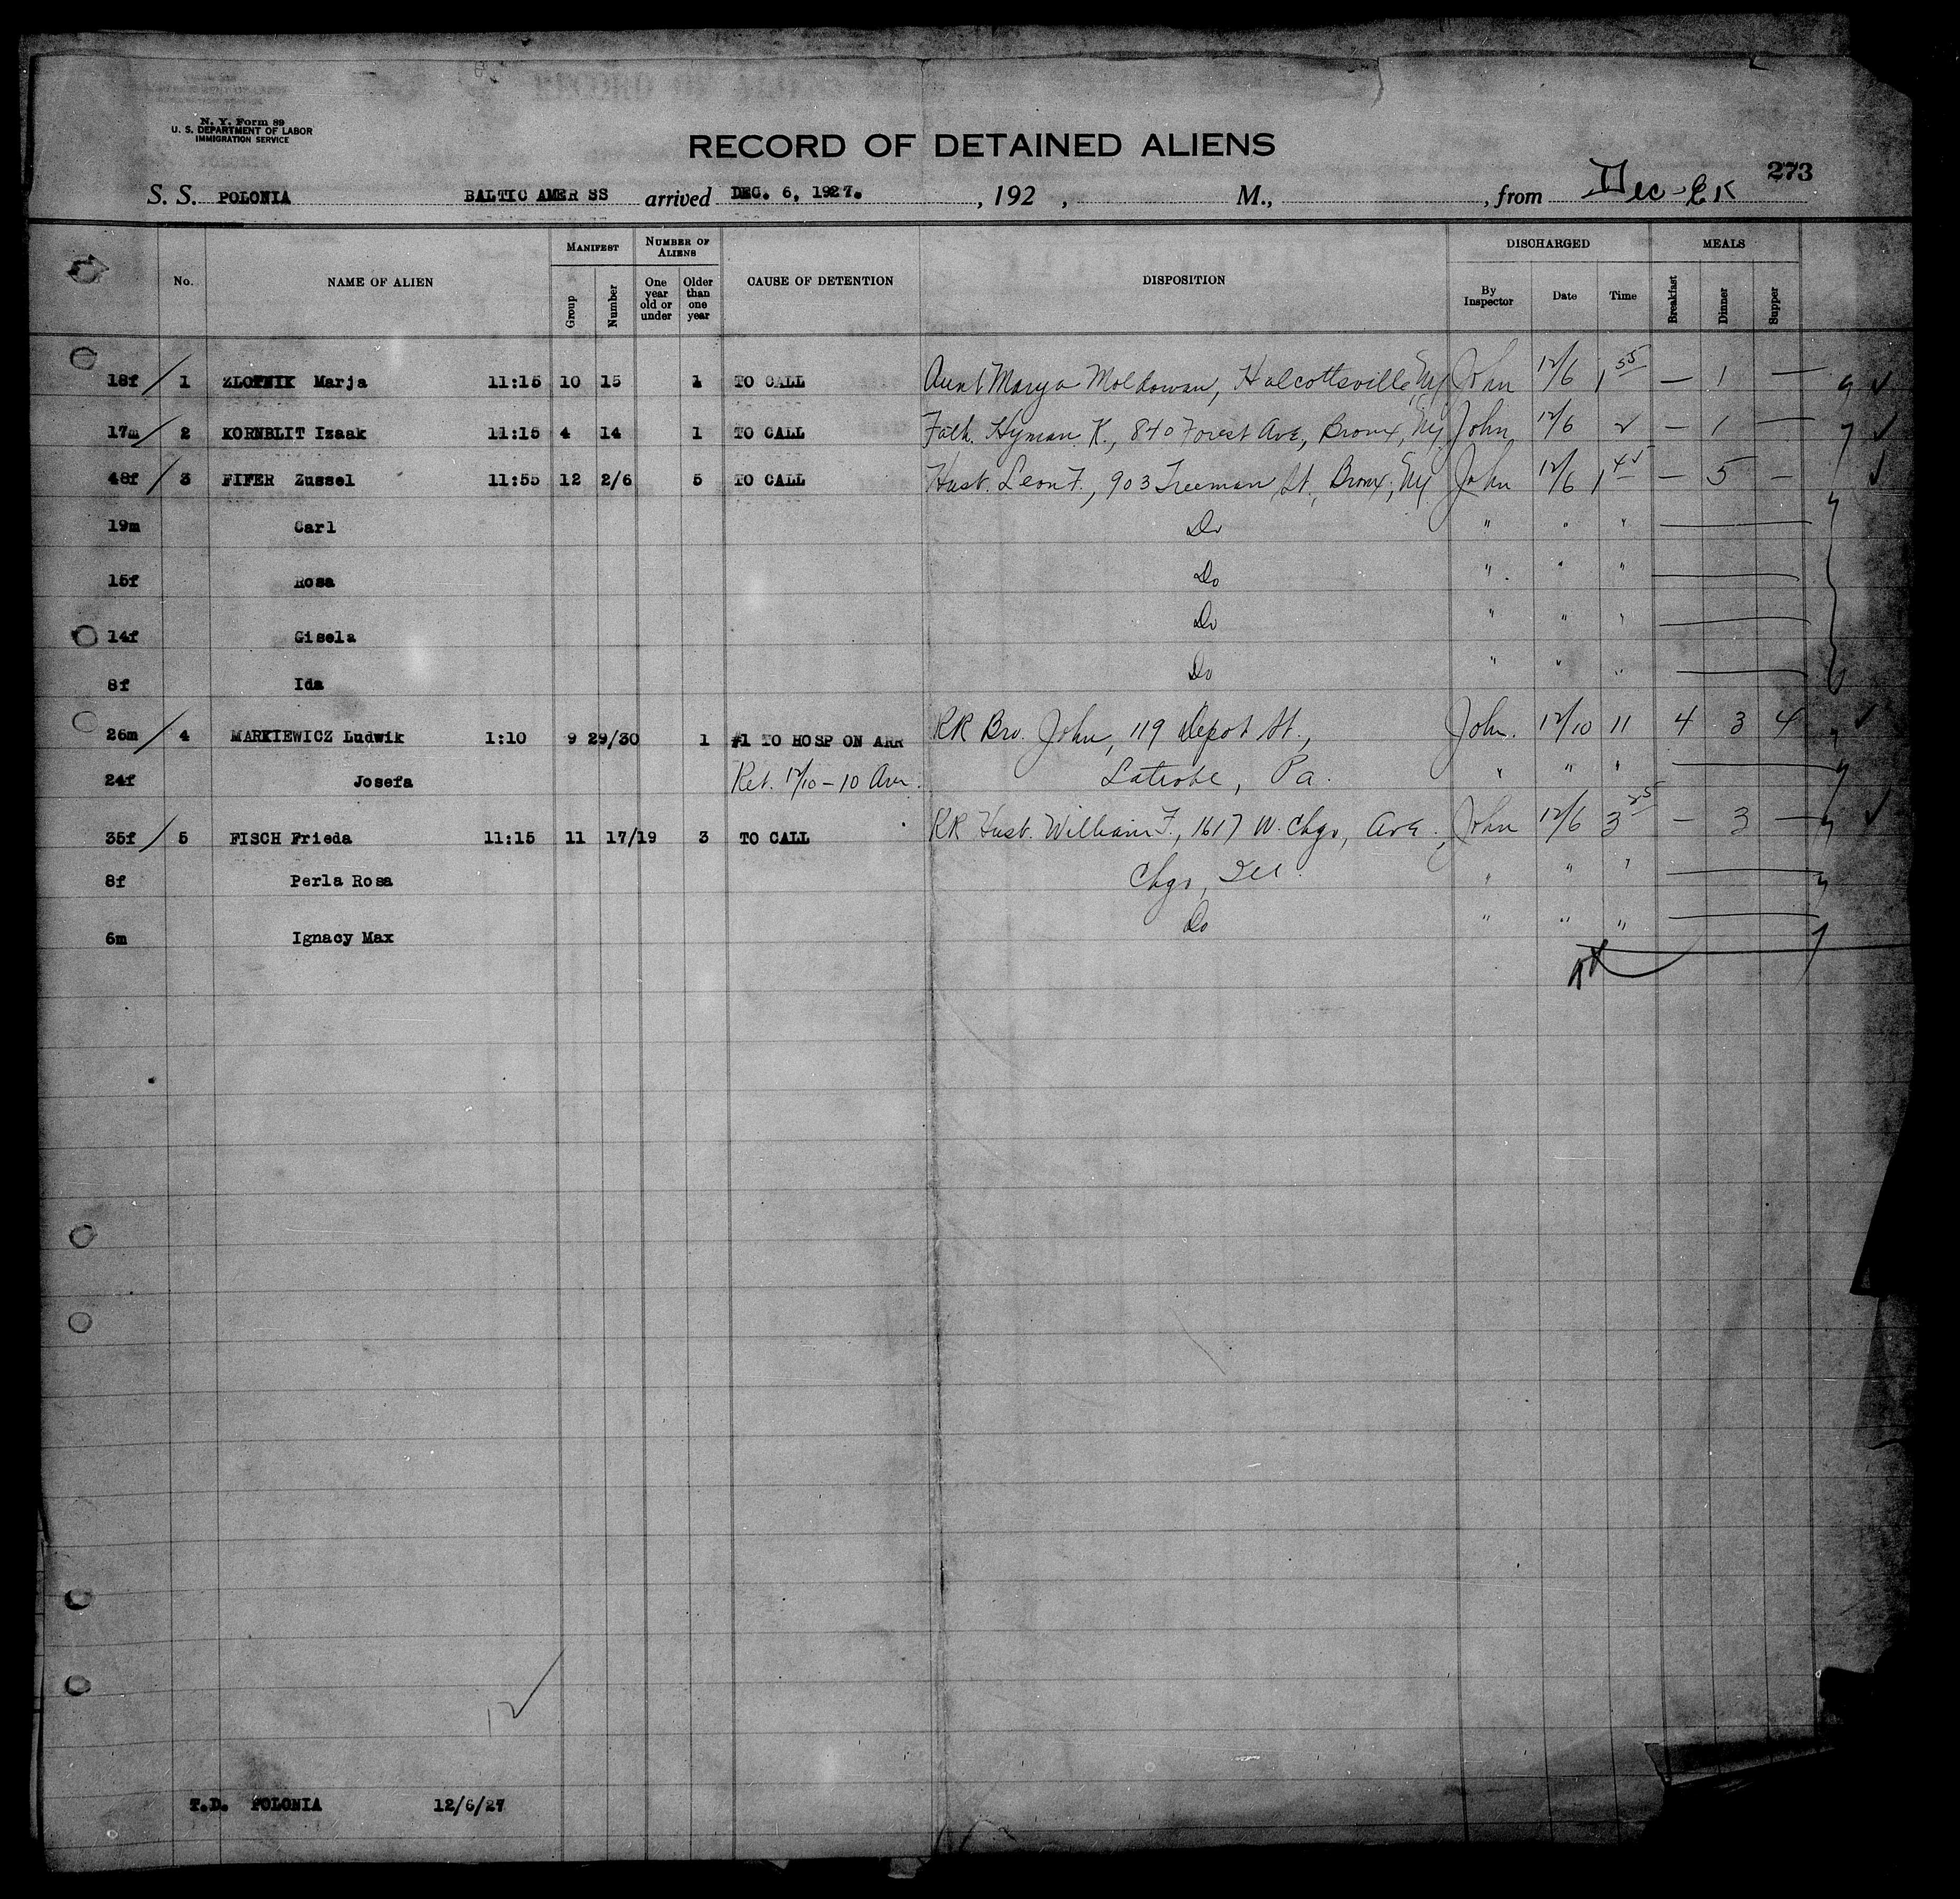 N. Y. Form 89
U. S. DEPARTMENT OF LABOR
IMMIGRATION SERVICE
RECORD OF DETAINED ALIENS
273
S. S. POLONIA BALTIC AMER SS arrived DEC. 6, 1927. , 192 , M., , from
No. NAME OF ALIEN MANIFEST Group Number NUMBER OF ALIENS One year old or under Older than one year CAUSE OF DETENTION DISPOSITION DISCHARGED By Inspector Date Time MEALS Breakfast Dinner Supper
18f / 1 Marja 11:15 10 15 1 TO CALL Aunt Marya Moldowan, Halcottsville, Ny John 12/6 1 55 — 1 —
17m / 2 KORNBLIT Izaak 11:15 4 14 1 TO CALL Fath. Hyman K., 840 Forest Ave, Bronx, Ny John 12/6 2 — 1 —
48f / 3 FIFER Zussel 11:55 12 2/6 5 TO CALL Husb. Leon F., 903 Freeman St., Bronx, Ny John 12/6 1 45 — 5 —
19m Carl Do " " "
15f Rosa Do " " "
14f Gisela Do " " "
8f Ida Do " " "
26m / 4 MARKIEWICZ Ludwik 1:10 9 29/30 1 #1 TO HOSP ON ARR RR Bro. John, 119 Depot St., John. 12/10 11 4 3 4
24f Josefa Ret. 12/10 - 10 Am. Latrobe, Pa. " " "
35f / 5 FISCH Frieda 11:15 11 17/19 3 TO CALL RR Husb. William F., 1617 W. Chgo, Ave., John 12/6 3 25 — 3 —
8f Perla Rosa Chgo, Ill. " " "
6m Ignacy Max Do " " "
12
T.D. POLONIA 12/6/27